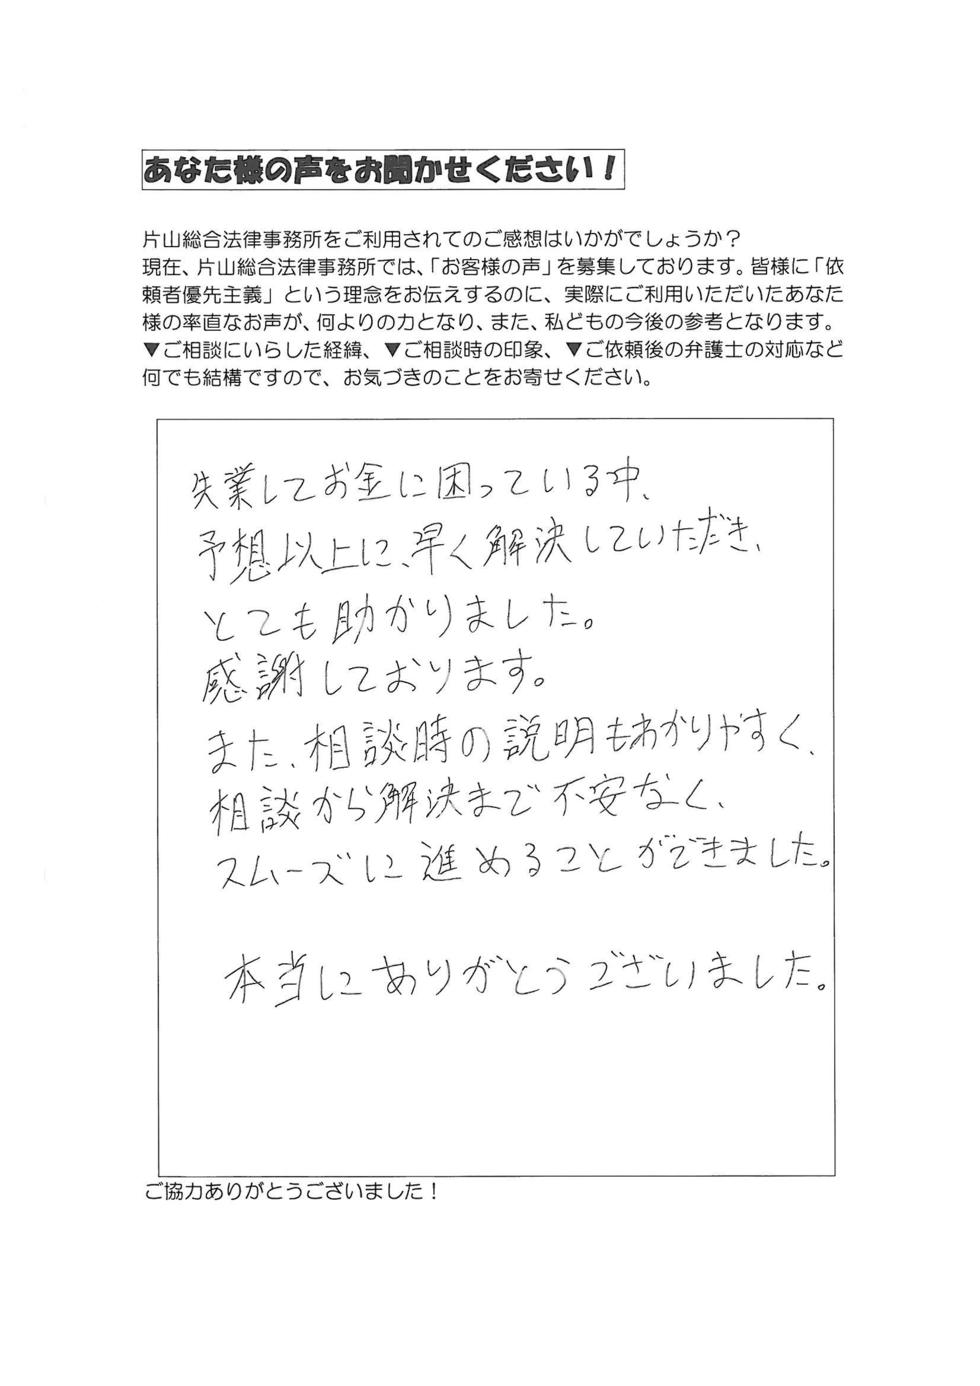 あなた様の声をお聞かせください！
片山総合法律事務所をご利用されてのご感想はいかがでしょうか？
現在、片山総合法律事務所では、「お客様の声」を募集しております。皆様に「依
頼者優先主義」という理念をお伝えするのに、実際にご利用いただいたあなた
様の率直なお声が、何よりの力となり、また、私どもの今後の参考となります。
▼ご相談にいらした経緯、▼ご相談時の印象、▼ご依頼後の弁護士の対応など
何でも結構ですので、お気づきのことをお寄せください。
失業してお金に困っている中、
予想以上に、早く解決していただき、
とても助かりました。
感謝しております。
また、相談時の説明もわかりやすく、
相談から解決まで不安なく、
スムーズに進めることができました。
本当にありがとうございました。
ご協力ありがとうございました！